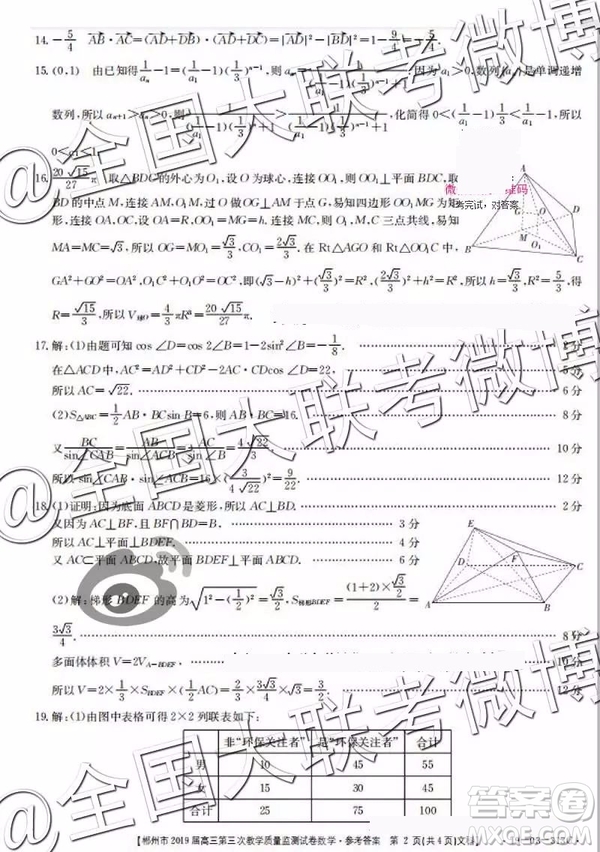 14. -5/4 AB·AC=(AD+DB)·(AD+DC)=|AD|²-|BD|²=1-9/4=-5/4.
15. (0,1) 由已知得1/aₙ-1=(1/a₁-1)(1/3)ⁿ⁻¹,则aₙ=
因为a₁>0,数列{aₙ}是单调递增
数列,所以aₙ₊₁>aₙ>0,即1/((1/a₁-1)(1/3)ⁿ+1)>1/((1/a₁-1)(1/3)ⁿ⁻¹+1),化简得0<(1/a₁-1)(1/3)
0<a₁<1.
16. 20√15/27π 取△BDC的外心为O₁,设O为球心,连接OO₁,则OO₁⊥平面BDC,取
BD的中点M,连接AM,O₁M,过O做OG⊥AM于点G,易知四边形OO₁MG为矩
形,连接OA,OC,设OA=R,OO₁=MG=h.连接MC,则O₁,M,C三点共线,易知
MA=MC=√3,所以OG=MO₁=√3/3,CO₁=2√3/3.在Rt△AGO和Rt△OO₁C中,
GA²+GO²=OA²,O₁C²+O₁O²=OC²,即(√3-h)²+(√3/3)²=R²,(2√3/3)²+h²=R²,所以h=√3/3,R²=5/3,得
R=√15/3,所以V球O=4/3πR³=20√15/27π.
考完试,对答案
A
G
O
D
M
O₁
B
C
17. 解:(1)由题可知cos∠D=cos 2∠B=1-2sin²∠B=-1/8. 2分
在△ACD中,AC²=AD²+CD²-2AD·CDcos∠D=22. 5分
所以AC=√22. 6分
(2)S△ABC=1/2AB·BCsin B=6,则AB·BC=16. 8分
又BC/sin∠CAB=AB/sin∠ACB=AC/sin B=4√22/3. 10分
所以sin∠CAB·sin∠ACB=16×(3/4√22)²=9/22. 12分
18. (1)证明:因为底面ABCD是菱形,所以AC⊥BD. 2分
又因为AC⊥BF,且BF∩BD=B. 3分
所以AC⊥平面BDEF. 4分
又AC⊂平面ABCD,故平面BDEF⊥平面ABCD. 6分
(2)解:梯形BDEF的高为√(1²-(1/2)²)=√3/2,S梯形BDEF=(1+2)×√3/2/2=
3√3/4. 8分
多面体体积V=2V A-BDEF
所以V=2×1/3×S BDEF×(1/2AC)=2/3×3√3/4×√3/2=3/4. 12分
E
F
D
C
A
B
19. 解:(1)由图中表格可得2×2列联表如下:
非“环保关注者” 是“环保关注者” 合计
男 10 45 55
女 15 30 45
合计 25 75 100
【郴州市2019届高三第三次教学质量监测试卷数学·参考答案 第2页(共4页)文科】
@全国大联考微博
@全国大联考微博
@全国大联考微博
答案圈
MXEQ.COM